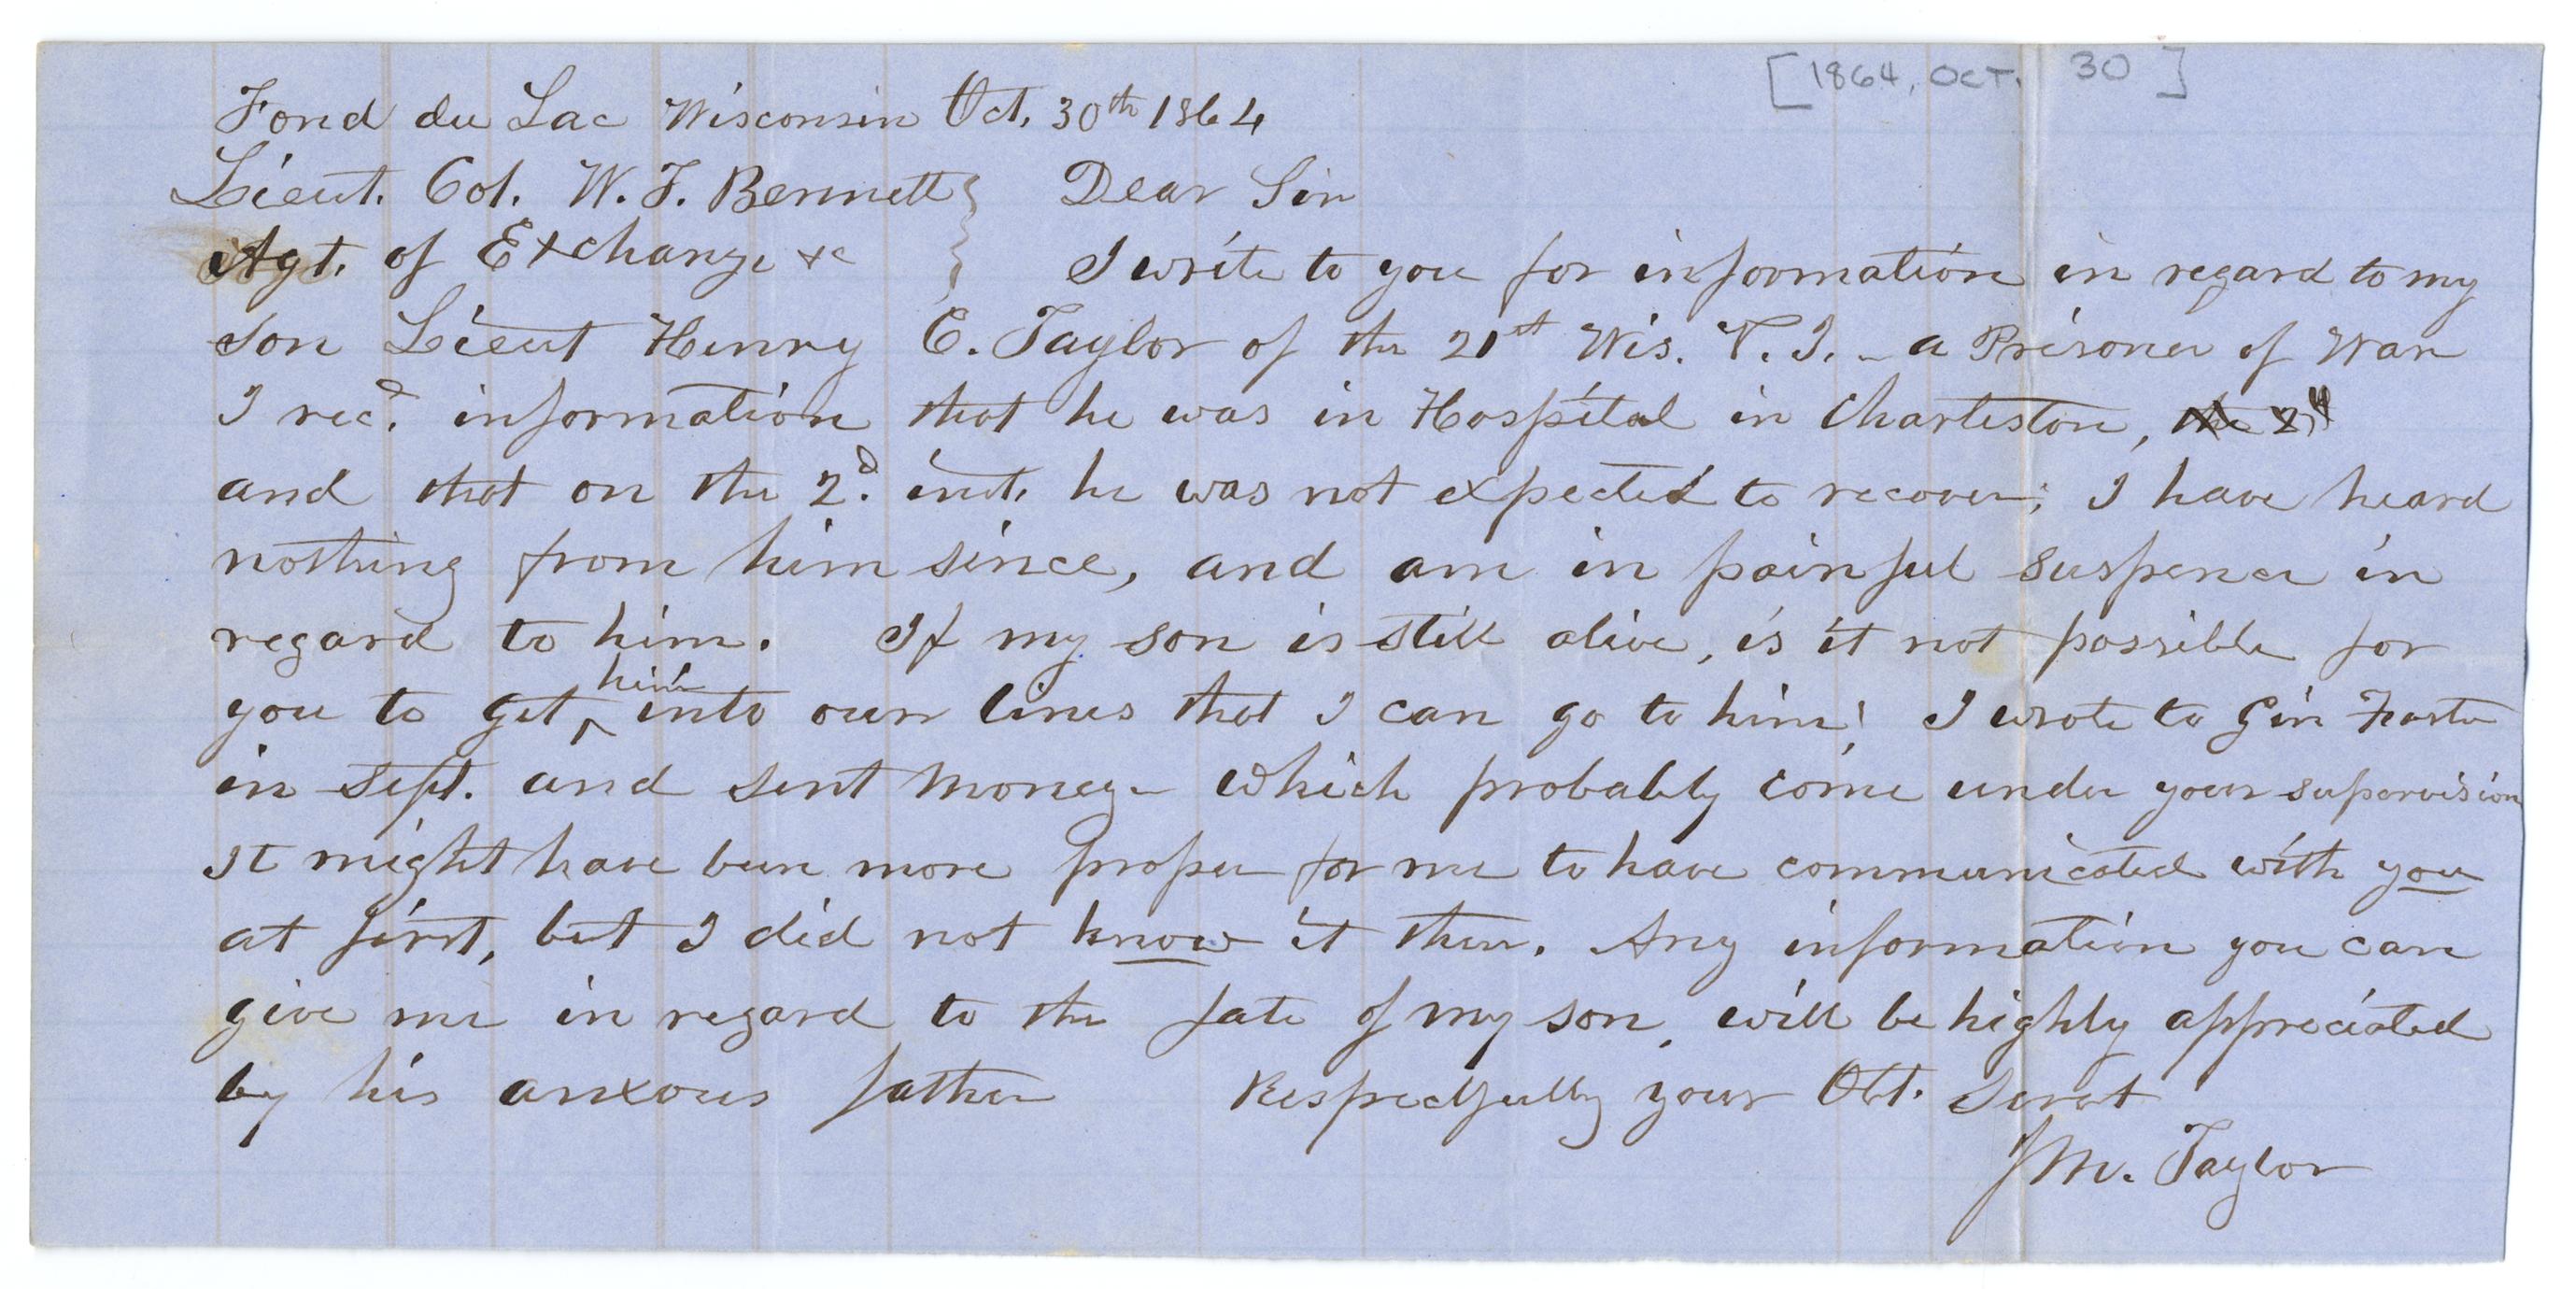 [1864, OCT. 30]
Fond du Lac Wisconsin Oct. 30th 1864
Lieut. Col. W. F. Bennett } Dear Sir
Agt. of Exchange &c } I write to you for information in regard to my
son Lieut Henry C. Taylor of the 21st Wis. V. I. - a Prisoner of War
I recd. information that he was in Hospital in Charleston, the 2d
and that on the 2d. inst. he was not expected to recover; I have heard
nothing from him since, and am in painful suspence in
regard to him. If my son is still alive, is it not possible for
him
you to get ^ into our lines that I can go to him! I wrote to Gen Foster
in Sept. and sent money - which probably come under your supervision
It might have been more proper for me to have communicated with you
at first, but I did not know it then. Any information you can
give me in regard to the fate of my son, will be highly appreciated
by his anxous father Respectfully your Obt. Servt
J M. Taylor